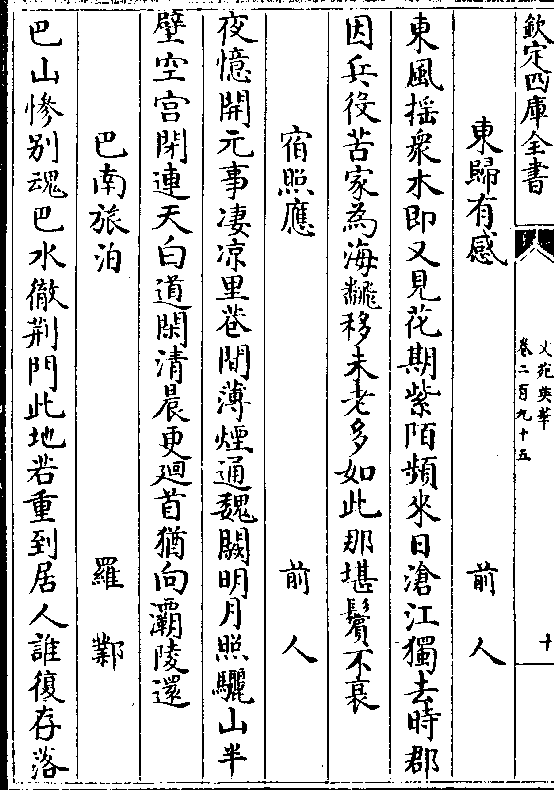 欽定四庫全書
文苑英華
卷二百九十五
十
東歸有感
前人
東風揺衆木即又見花期紫陌頻來日滄江獨去時郡
因兵役苦家為海𩙪移未老多如此那堪鬢不衰
宿照應
前人
夜憶開元事凄凉里巷間薄煙通魏闕明月照驪山半
壁空宫閉連天白道閑清晨更廻首猶向灞陵還
巴南旅泊
羅鄴
巴山慘别魂巴水徹荆門此地若重到居人誰復存落